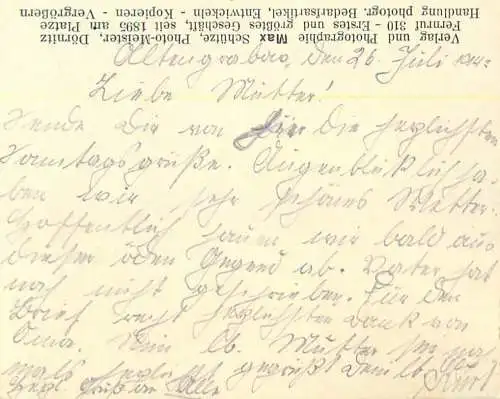 Verlag und Photographie Max Schütze, Photo-Meister, Dörnitz
Fernruf 310 - Erstes und größtes Geschäft, seit 1895 am Platze
Handlung photogr. Bedarfsartikel, Entwickeln - Kopieren - Vergrößern
Altengrabow, den 26. Juli
Liebe Mutter!
Sende Dir von hier die herzlichsten
Sonntagsgrüße. Augenblicklich ha-
ben wir sehr schönes Wetter.
Hoffentlich hauen wir bald aus
dieser öden Gegend ab. Vater hat
noch nicht geschrieben. Für den
Brief recht herzlichsten Dank von
Oma. Nun lb. Mutter sei noch-
mals herzlich gegrüßt Dein lb. Kurt
Herzl. Gruß an Alle